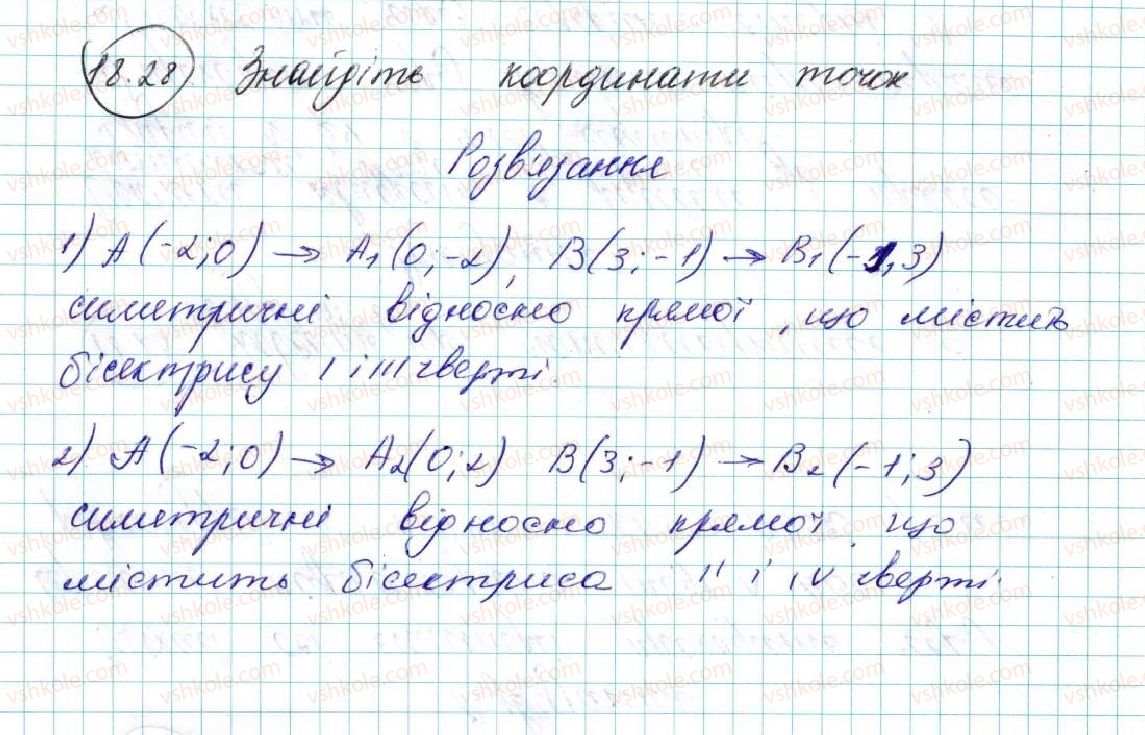 18.28 Знайдіть координати точок
Розв'язання
1) A(-2;0) → A₁(0;-2), B(3;-1) → B₁(-1,3)
симетричні відносно прямої, що містить
бісектрису I і III чверті.
2) A(-2;0) → A₂(0;2) B(3;-1) → B₂(-1;3)
симетричні відносно прямої, що
містить бісектриса II і IV чверті.